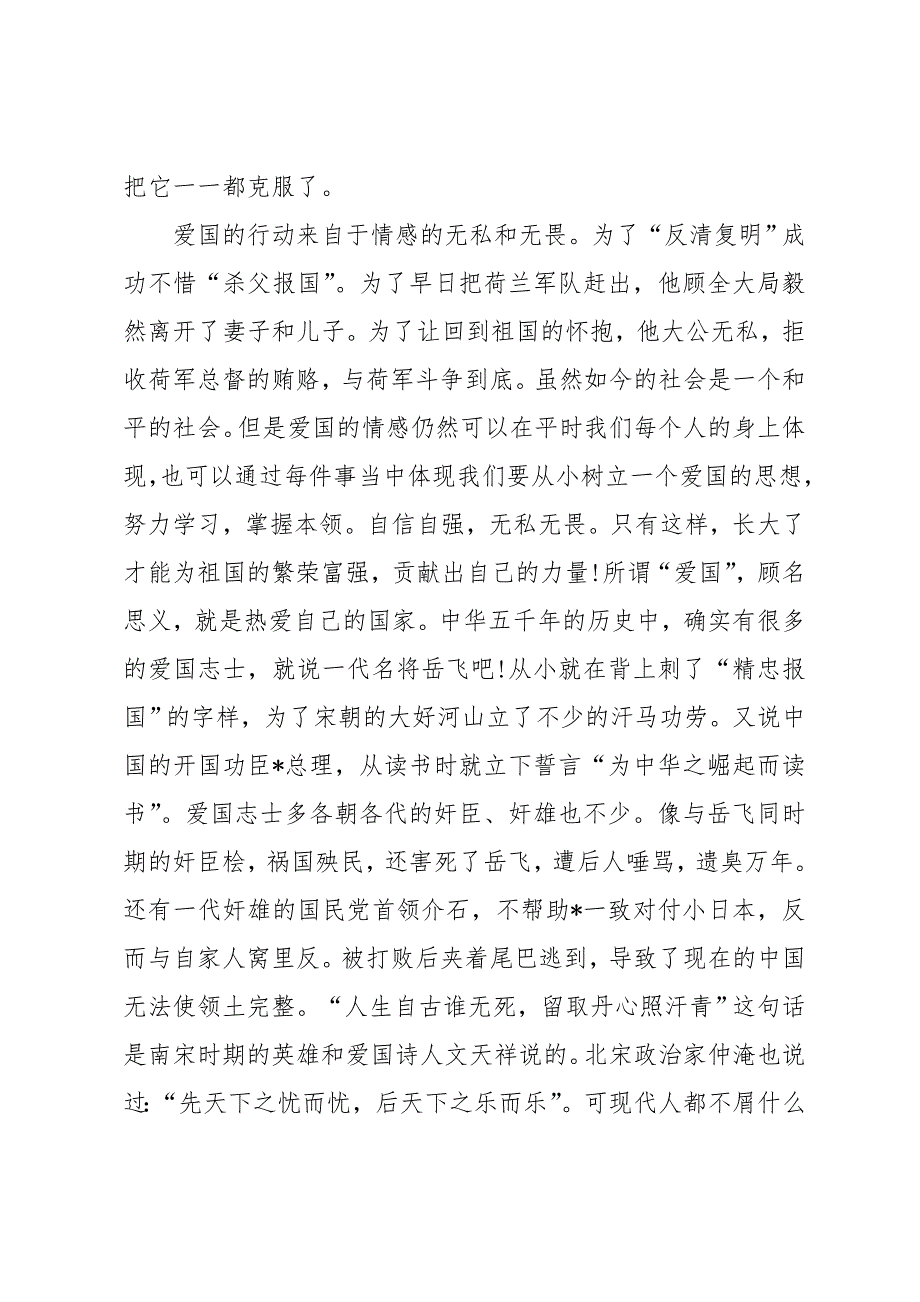 把它一一都克服了。
爱国的行动来自于情感的无私和无畏。为了“反清复明”成
功不惜“杀父报国”。为了早日把荷兰军队赶出，他顾全大局毅
然离开了妻子和儿子。为了让回到祖国的怀抱，他大公无私，拒
收荷军总督的贿赂，与荷军斗争到底。虽然如今的社会是一个和
平的社会。但是爱国的情感仍然可以在平时我们每个人的身上体
现,也可以通过每件事当中体现我们要从小树立一个爱国的思想，
努力学习，掌握本领。自信自强，无私无畏。只有这样，长大了
才能为祖国的繁荣富强，贡献出自己的力量!所谓“爱国”，顾名
思义，就是热爱自己的国家。中华五千年的历史中，确实有很多
的爱国志士，就说一代名将岳飞吧!从小就在背上刺了“精忠报
国”的字样，为了宋朝的大好河山立了不少的汗马功劳。又说中
国的开国功臣*总理，从读书时就立下誓言“为中华之崛起而读
书”。爱国志士多各朝各代的奸臣、奸雄也不少。像与岳飞同时
期的奸臣桧，祸国殃民，还害死了岳飞，遭后人唾骂，遗臭万年。
还有一代奸雄的国民党首领介石，不帮助*一致对付小日本，反
而与自家人窝里反。被打败后夹着尾巴逃到，导致了现在的中国
无法使领土完整。“人生自古谁无死，留取丹心照汗青”这句话
是南宋时期的英雄和爱国诗人文天祥说的。北宋政治家仲淹也说
过：“先天下之忧而忧，后天下之乐而乐”。可现代人都不屑什么